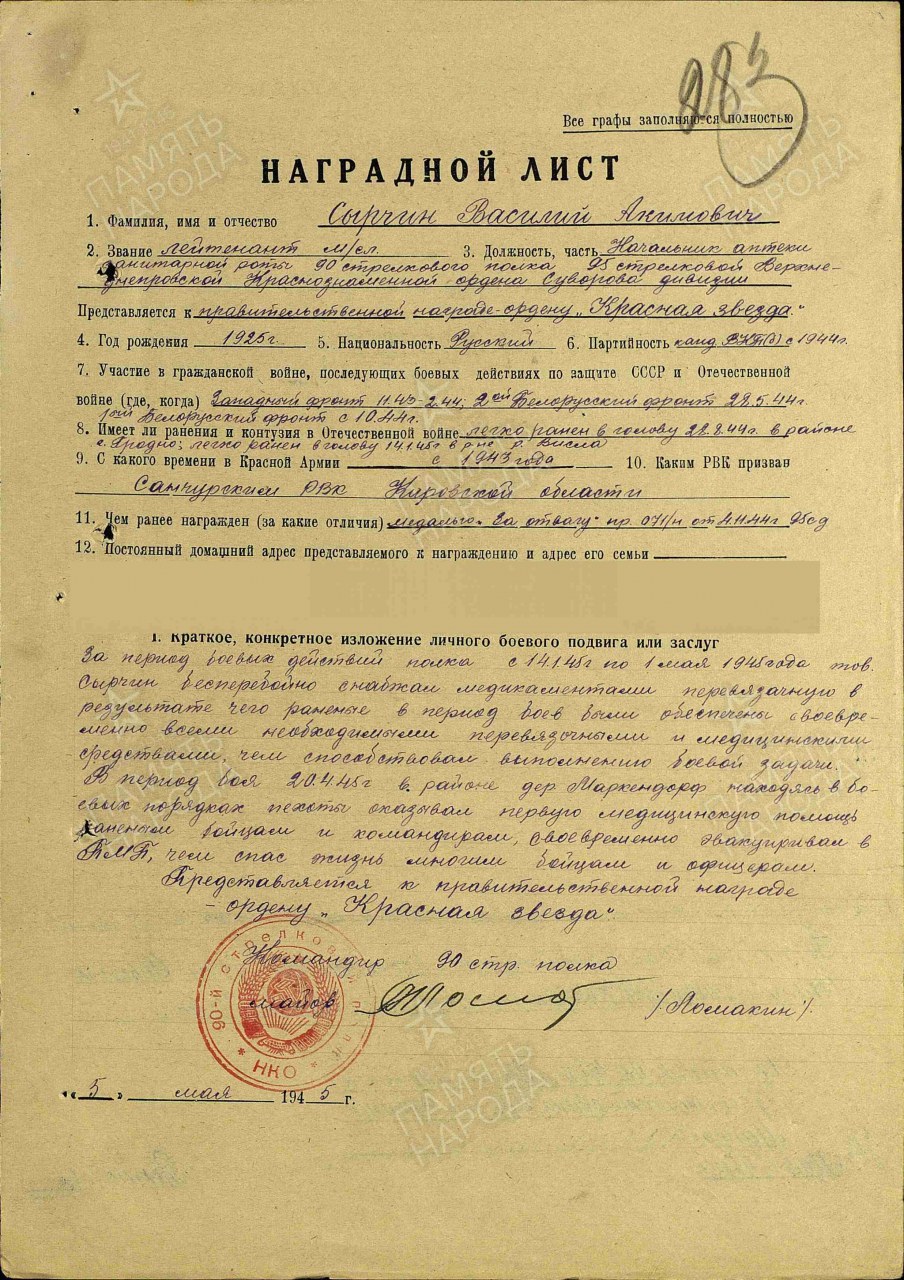 283
Все графы заполняются полностью
НАГРАДНОЙ ЛИСТ
1. Фамилия, имя и отчество Сырчин Василий Акимович
2. Звание лейтенант м/сл. 3. Должность, часть Начальник аптеки
санитарной роты 90 стрелкового полка 95 стрелковой Верхне-
днепровской Краснознаменной ордена Суворова дивизии
Представляется к правительственной награде-ордену „Красная звезда"
4. Год рождения 1925г. 5. Национальность Русский 6. Партийность канд. ВКП(б) с 1944г.
7. Участие в гражданской войне, последующих боевых действиях по защите СССР и Отечественной
войне (где, когда) Западный фронт 11.43-2.44; 2ой Белорусский фронт 28.5.44г.
1ый Белорусский фронт с 10.44г.
8. Имеет ли ранения и контузия в Отечественной войне легко ранен в голову 22.8.44г. в районе
г. Гродно; легко ранен в голову 14.1.45г. в р-не р. Висла
9. С какого времени в Красной Армии с 1943 года 10. Каким РВК призван
Санчурским РВК Кировской области
11. Чем ранее награжден (за какие отличия) медалью „За отвагу" пр. 071/н от 4.11.44г 95сд
12. Постоянный домашний адрес представляемого к награждению и адрес его семьи
I. Краткое, конкретное изложение личного боевого подвига или заслуг
За период боевых действий полка с 14.1.45г по 1 мая 1945года тов.
Сырчин бесперебойно снабжал медикаментами перевязочную в
результате чего раненые в период боев были обеспечены своевре-
менно всеми необходимыми перевязочными и медицинскими
средствами, чем способствовал выполнению боевой задачи.
В период боя 20.4.45г в районе дер Маркендорф находясь в бо-
евых порядках пехоты оказывал первую медицинскую помощь
раненым бойцам и командирам, своевременно эвакуировал в
ПМП, чем спас жизнь многим бойцам и офицерам.
Представляется к правительственной награде
- ордену „Красная звезда".
Командир 90 стр. полка
майор /Ломакин/.
90-й стрелковый полк
НКО
„5" мая 1945г.
ПАМЯТЬ НАРОДА